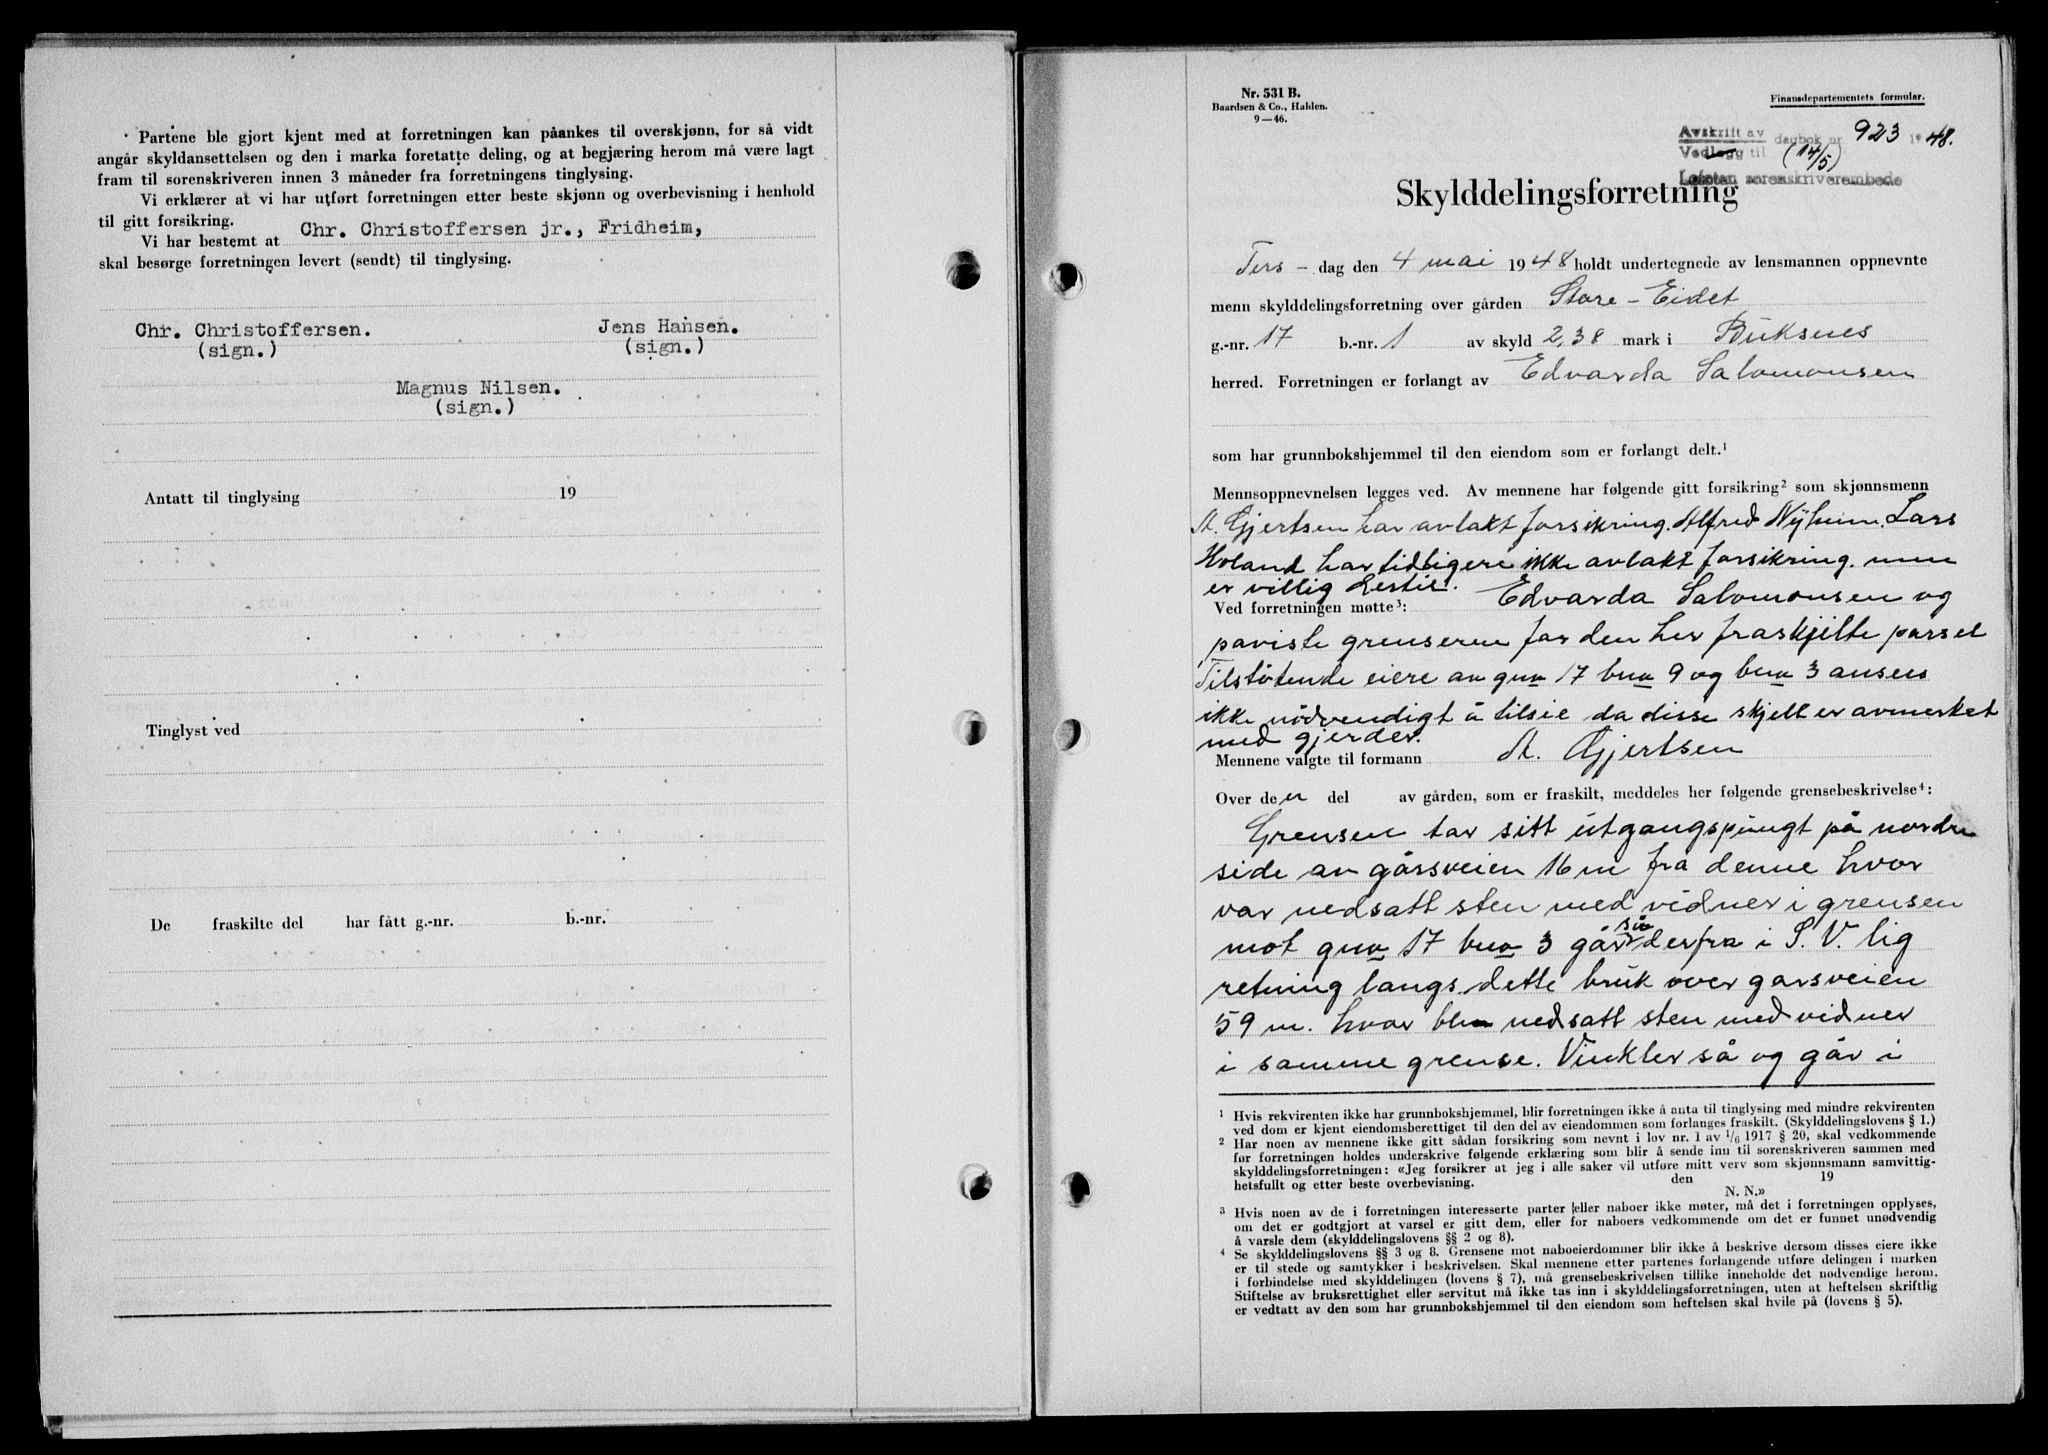 Partene ble gjort kjent med at forretningen kan påankes til overskjønn, for så vidt
angår skyldansettelsen og den i marka foretatte deling, og at begjæring herom må være lagt
fram til sorenskriveren innen 3 måneder fra forretningens tinglysing.
Vi erklærer at vi har utført forretningen etter beste skjønn og overbevisning i henhold
til gitt forsikring.
Vi har bestemt at Chr. Christoffersen jr., Fridheim,
skal besørge forretningen levert (sendt) til tinglysing.
Chr. Christoffersen. Jens Hansen.
(sign.) (sign.)
Magnus Nilsen.
(sign.)
Antatt til tinglysing 19
Tinglyst ved
De fraskilte del har fått g.-nr. b.-nr.
Nr. 531 B.
Baardsen & Co., Halden.
9—46.
Finansdepartementets formular.
Avskrift av dagbok nr 923 19 48.
Vedlegg til (14/5)
Lofoten sorenskriverembede
Skylddelingsforretning
Tirs-dag den 4 mai 1948 holdt undertegnede av lensmannen oppnevnte
menn skylddelingsforretning over gården Store-Eidet
g.-nr. 17 b.-nr. 1 av skyld 2,38 mark i Buksnes
herred. Forretningen er forlangt av Edvarda Salomonsen
som har grunnbokshjemmel til den eiendom som er forlangt delt.¹
Mennsoppnevnelsen legges ved. Av mennene har følgende gitt forsikring² som skjønnsmenn
A. Gjertsen har avlakt forsikring. Alfred Nyheim. Lars
Holand har tidligere ikke avlakt forsikring. men
er villig dertil.
Ved forretningen møtte³: Edvarda Salomonsen og
påviste grensene for den her fraskjilte parsel
Tilstøtende eiere av gnr 17 bnr 9 og bnr 3 ansees
ikke nødvendigt å tilsie da disse skjell er avmerket
med gjerder.
Mennene valgte til formann A. Gjertsen
Over den del av gården, som er fraskilt, meddeles her følgende grensebeskrivelse⁴:
Grensen tar sitt utgangspungt på nordre
side av gårsveien 16 m fra denne hvor
var nedsatt sten med vidner i grensen
mot gnr 17 bnr 3 går så derfra i S. V. lig
retning langs dette bruk over garsveien
59 m. hvor ble nedsatt sten med vidner
i samme grense. Vinkler så og går i
¹ Hvis rekvirenten ikke har grunnbokshjemmel, blir forretningen ikke å anta til tinglysing med mindre rekvirenten
ved dom er kjent eiendomsberettiget til den del av eiendommen som forlanges fraskilt. (Skylddelingslovens § 1.)
² Har noen av mennene ikke gitt sådan forsikring som nevnt i lov nr. 1 av 1/6 1917 § 20, skal vedkommende
før forretningen holdes underskrive følgende erklæring som blir å sende inn til sorenskriveren sammen med
skylddelingsforretningen: «Jeg forsikrer at jeg i alle saker vil utføre mitt verv som skjønnsmann samvittig-
hetsfullt og etter beste overbevisning. den 19
N. N.»
³ Hvis noen av de i forretningen interesserte parter eller naboer ikke møter, må det i forretningen opplyses,
om det er godtgjort at varsel er gitt dem, eller for naboers vedkommende om det er funnet unødvendig
å varsle dem (skylddelingslovens §§ 2 og 8).
⁴ Se skylddelingslovens §§ 3 og 8. Grensene mot naboeierdommer blir ikke å beskrive dersom disses eiere ikke
er til stede og samtykker i beskrivelsen. Skal mennene etter partenes forlangende utføre delingen i marken
i forbindelse med skylddelingen (lovens § 7), må grensebeskrivelsen tillike inneholde det nødvendige herom.
Stiftelse av bruksrettighet eller servitut må ikke tas inn i skylddelingsforretningen, uten at heftelsen skriftlig
er vedtatt av den som har grunnbokshjemmel til den eiendom som heftelsen skal hvile på (lovens § 5).